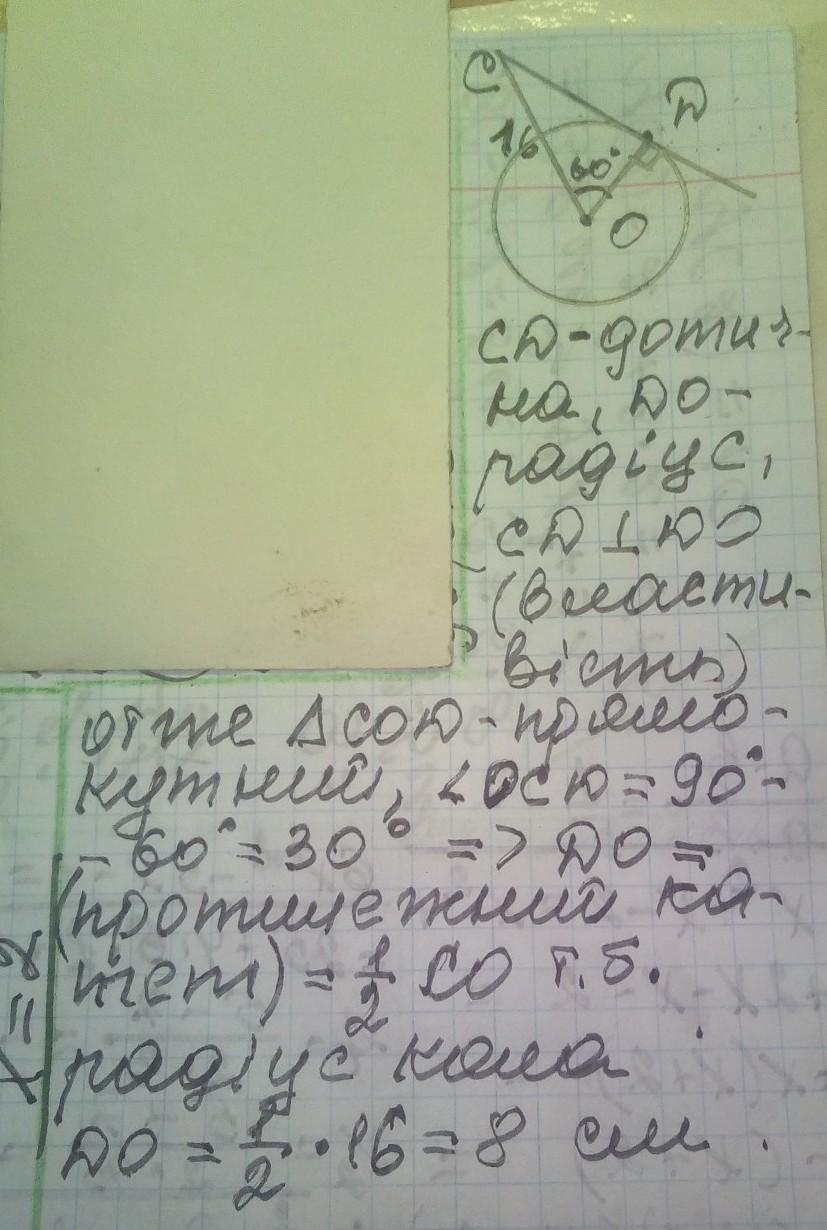 C
D
16
60°
O
CD-дотич-
на, DO-
радіус,
CD⊥DO
(власти-
вість)
отже ΔCOD-прямо-
кутний, <OCD=90°-
-60°=30° => DO=
(протилежний ка-
тет)=1/2 CO т.б.
радіус кола
DO = 1/2 · 16 = 8 см.
x=2